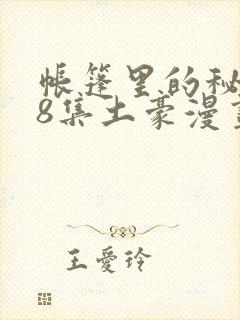 帐篷里的秘
8集土豪漫画
王爱玲